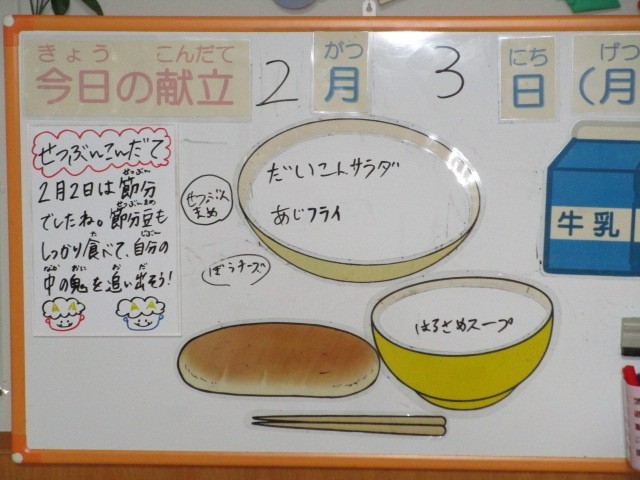 きょう こんだて
今日の献立
2
がつ
月
3
にち
日
げつ
(月
せつぶんこんだて
2月2日は節分
せつぶん
でしたね。節分豆も
せつぶんまめ
しっかり食べて、自分の
た じぶん
中の鬼を追い出そう!
なか おに お だ
せつぶん
まめ
ぼうチーズ
だいこんサラダ
あじフライ
はるさめスープ
牛乳